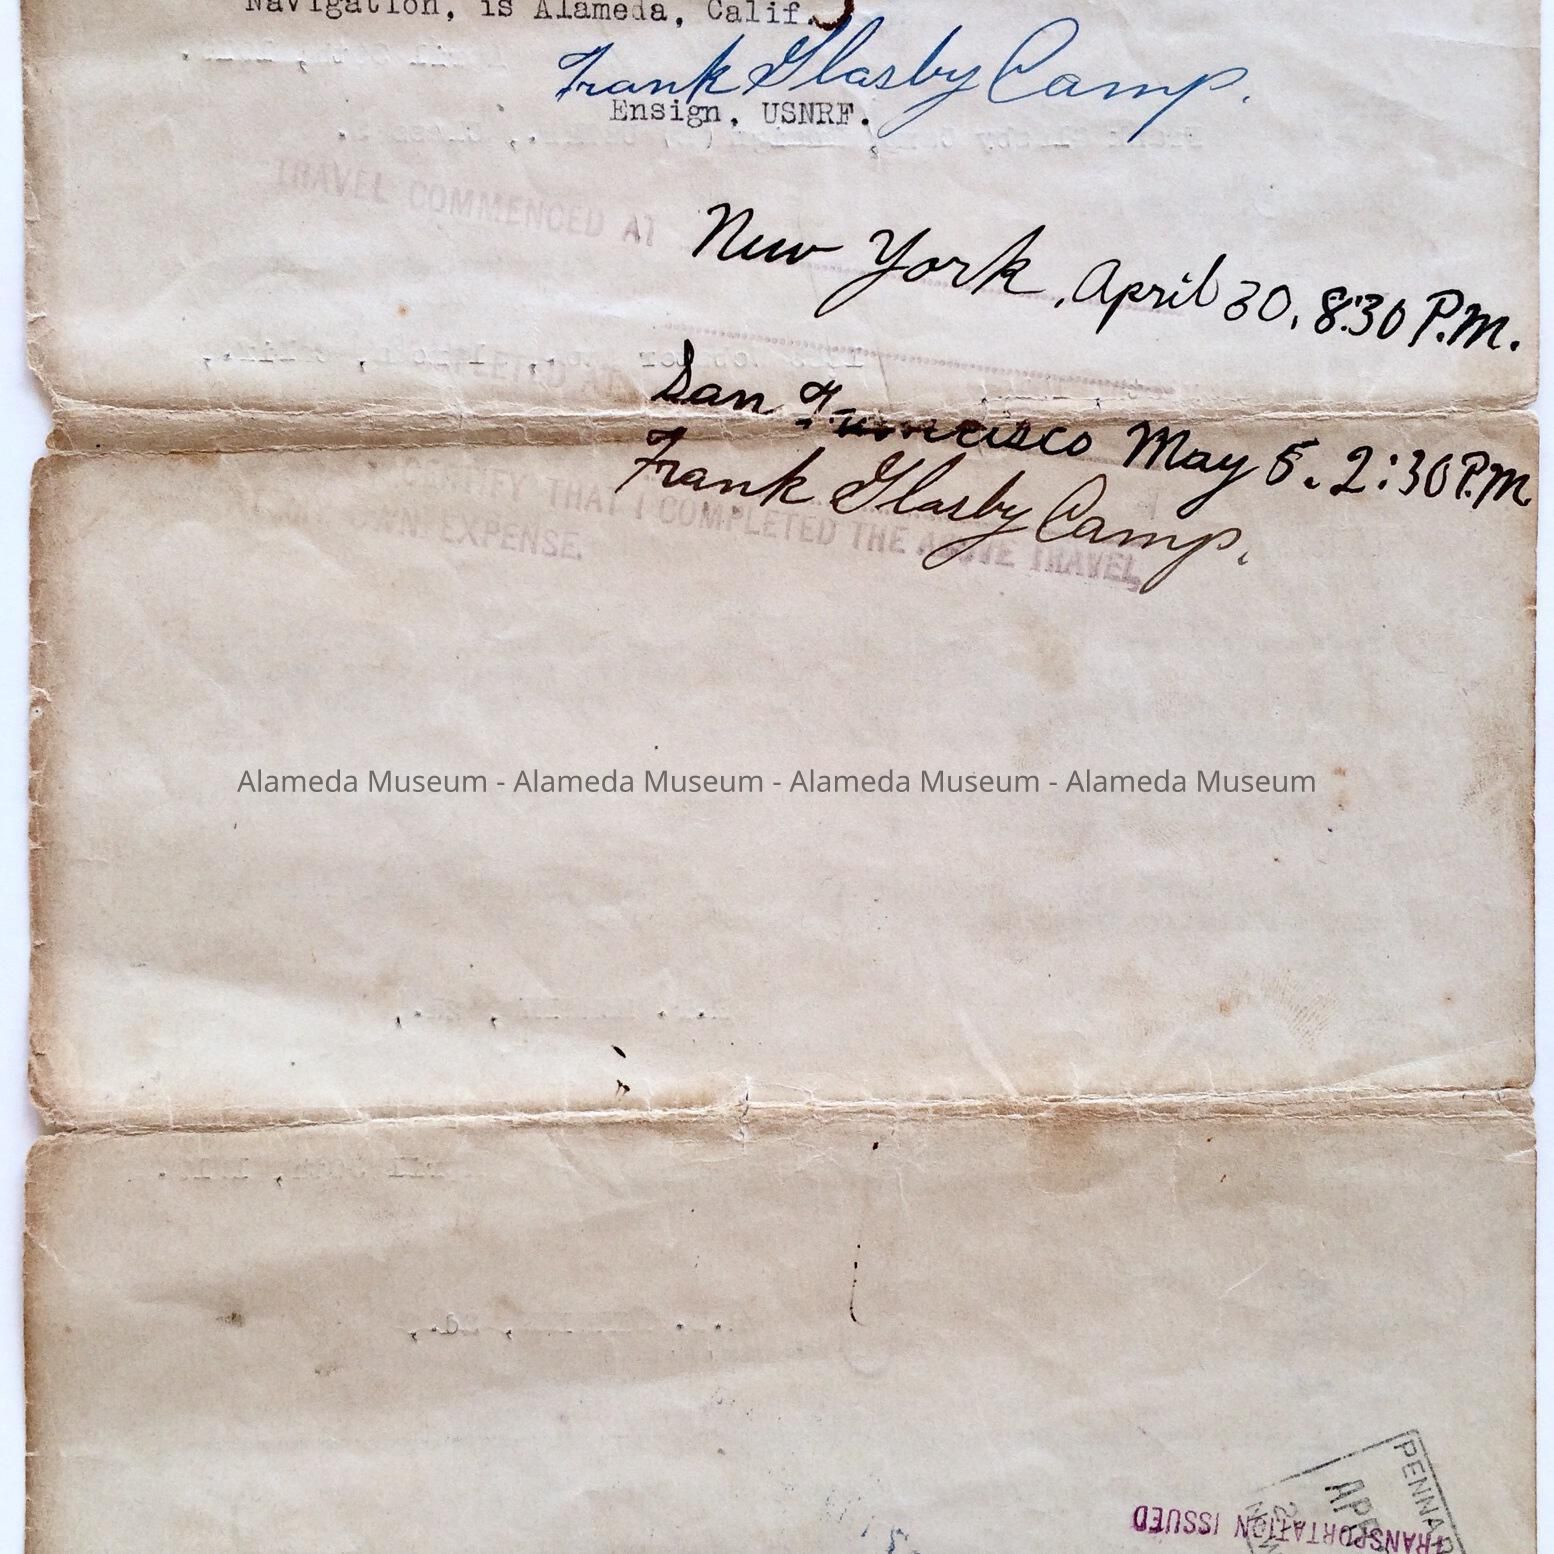 Navigation, is Alameda, Calif.
Frank Glasby Camp.
Ensign, USNRF.
TRAVEL COMMENCED AT
New York, April 30, 8:30 P.M.
COMPLETED AT
San Francisco May 5. 2:30 P.M.
Frank Glasby Camp.
CERTIFY THAT I COMPLETED THE ABOVE TRAVEL
OWN EXPENSE.
Alameda Museum - Alameda Museum - Alameda Museum - Alameda Museum
TRANSPORTATION ISSUED
PENNA
APR